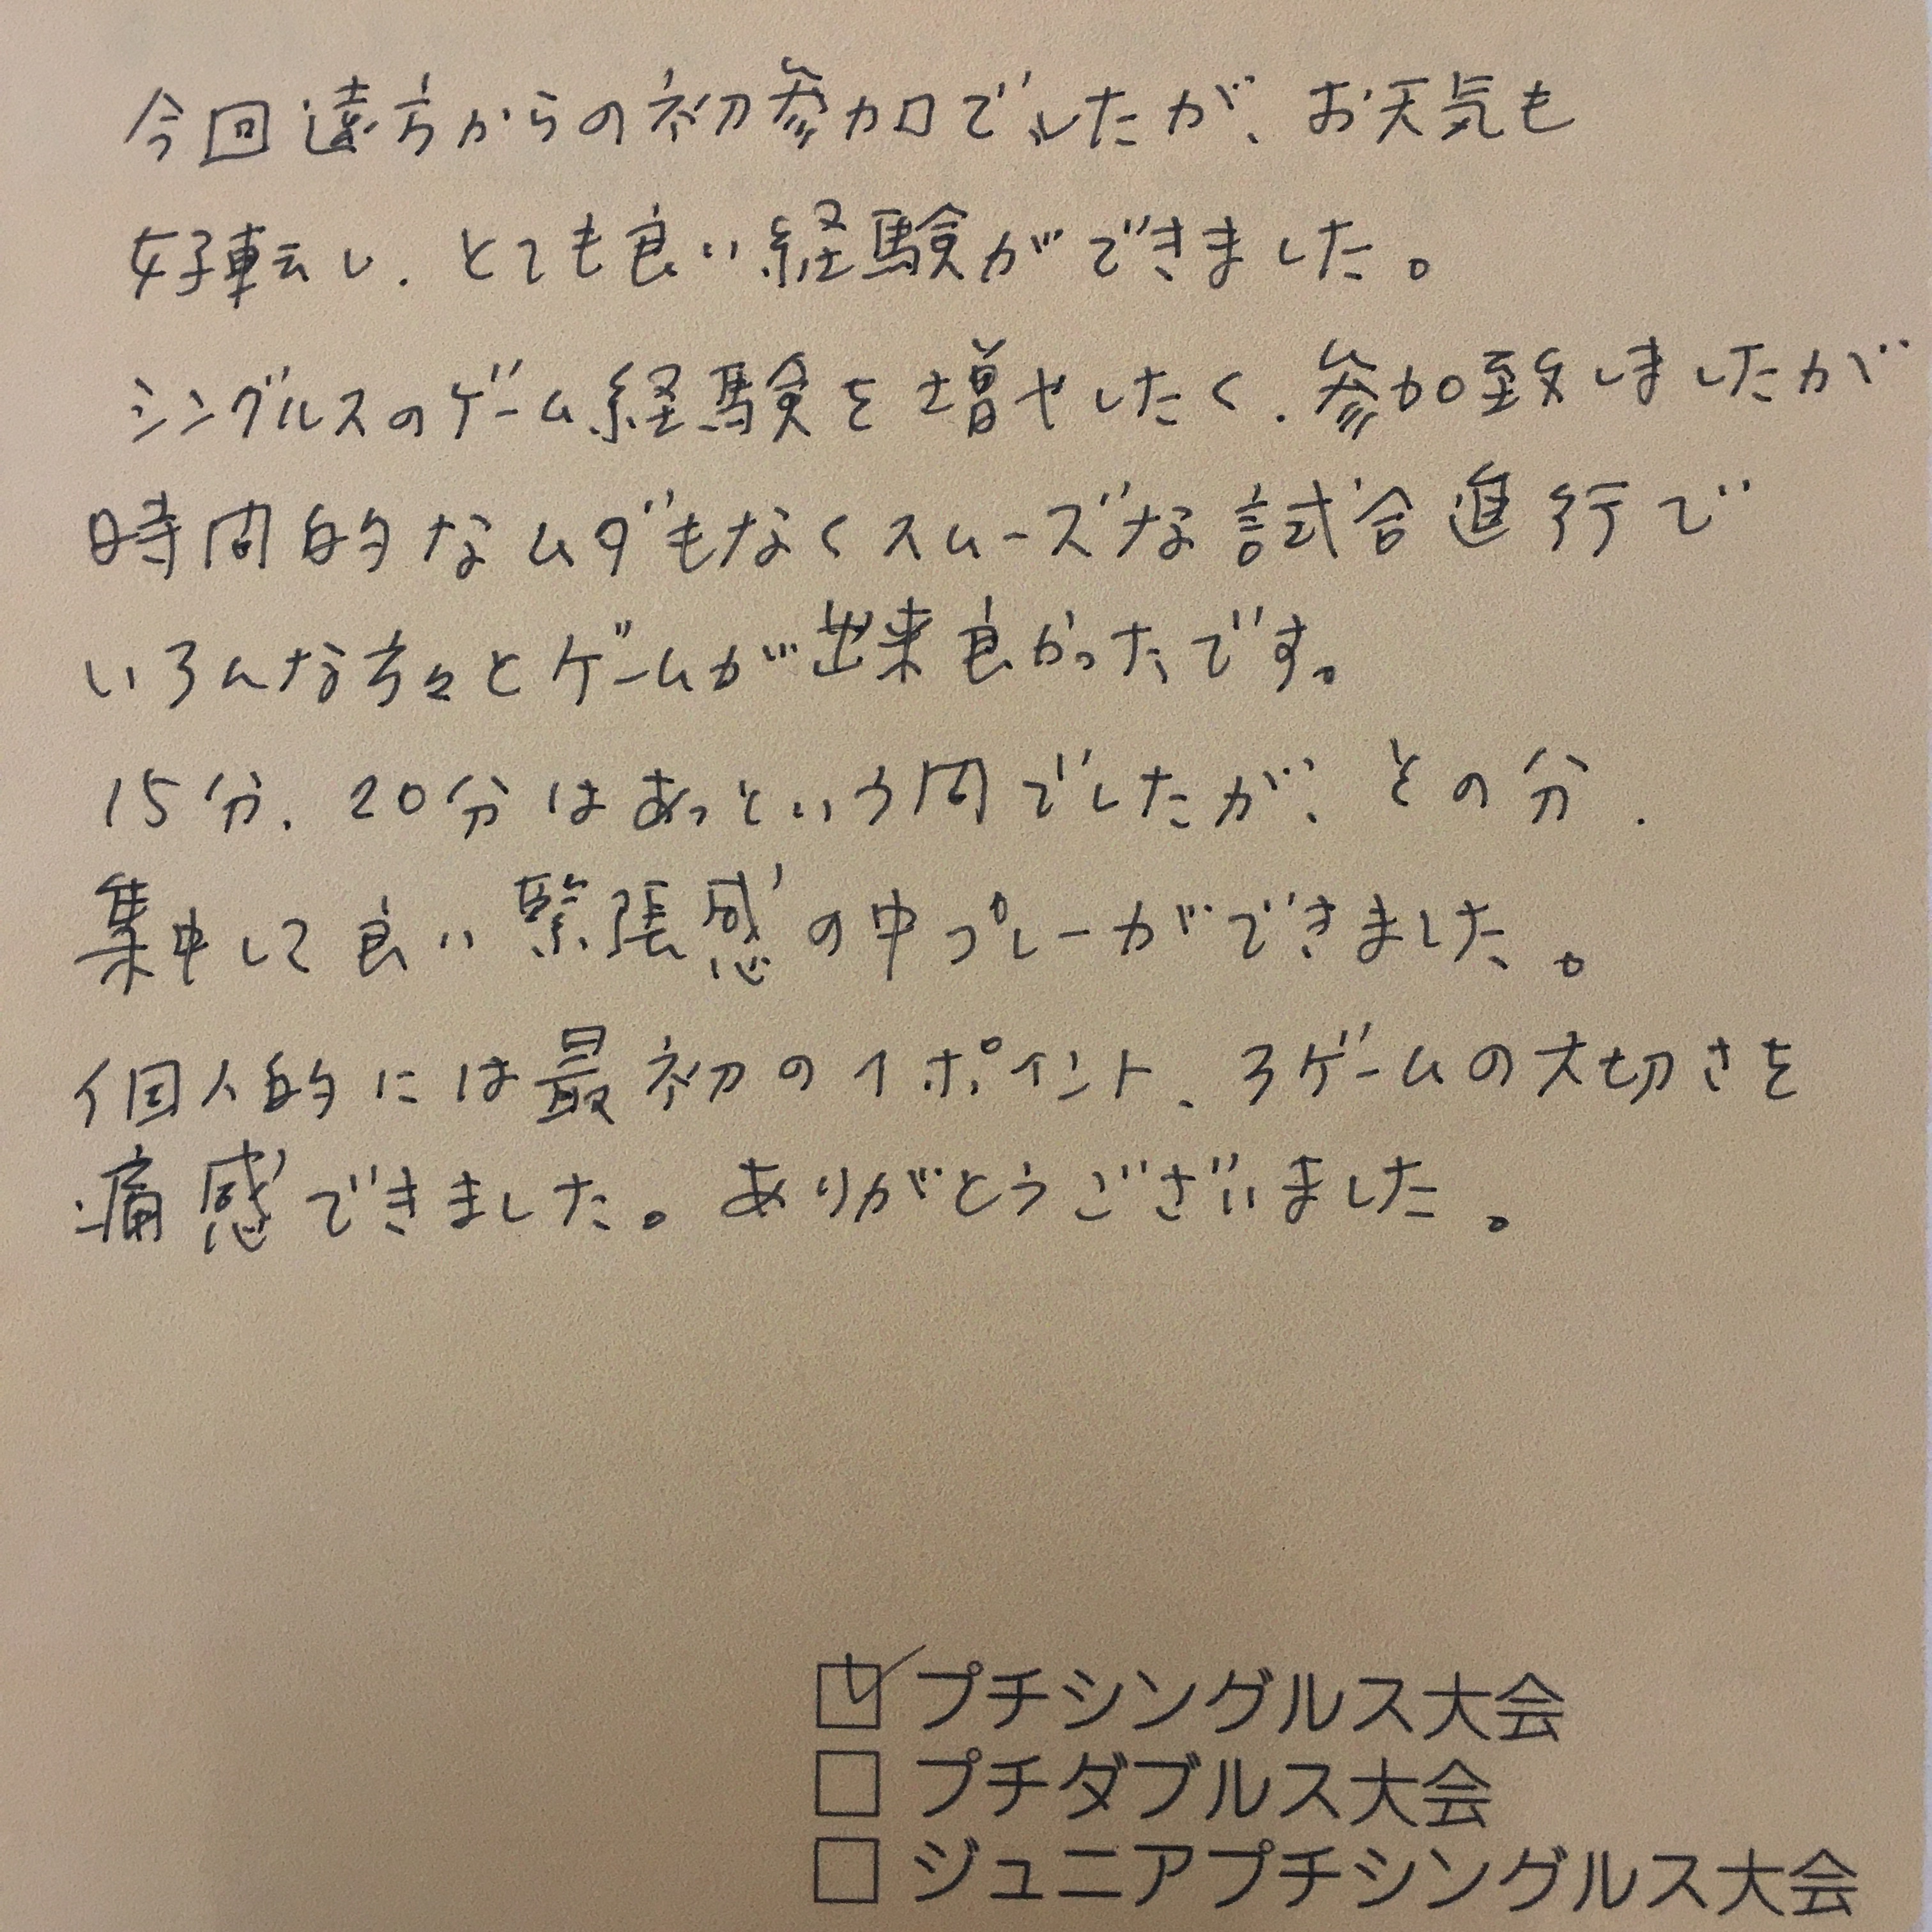 今回遠方からの初参加でしたが、お天気も
好転し、とても良い経験ができました。
シングルスのゲーム経験を増やしたく、参加致しましたが
時間的なムダもなくスムーズな試合進行で
いろんな方々とゲームが出来良かったです。
15分、20分はあっという間でしたが、その分、
集中して良い緊張感の中プレーができました。
個人的には最初の1ポイント、3ゲームの大切さを
痛感できました。ありがとうございました。
☑プチシングルス大会
□プチダブルス大会
□ジュニアプチシングルス大会